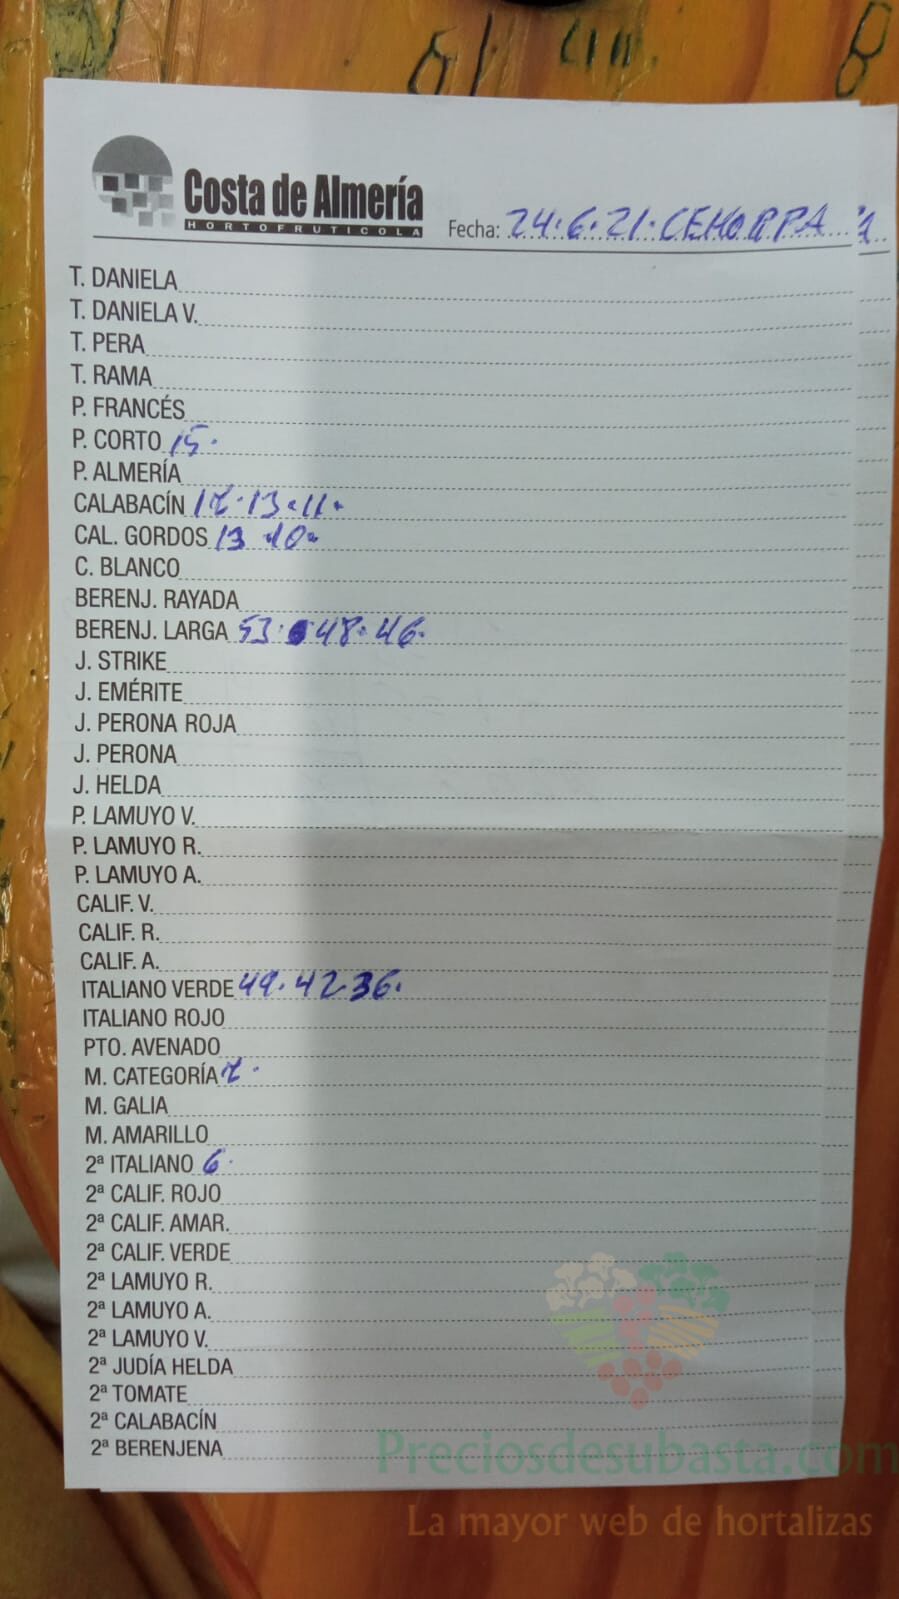 Costa de Almería
HORTOFRUTICOLA
Fecha: 24·6·21·CEHORPA
T. DANIELA
T. DANIELA V.
T. PERA
T. RAMA
P. FRANCÉS
P. CORTO 15·
P. ALMERÍA
CALABACÍN 17·13·11·
CAL. GORDOS 13 10·
C. BLANCO
BERENJ. RAYADA
BERENJ. LARGA 53· 48·46·
J. STRIKE
J. EMÉRITE
J. PERONA ROJA
J. PERONA
J. HELDA
P. LAMUYO V.
P. LAMUYO R.
P. LAMUYO A.
CALIF. V.
CALIF. R.
CALIF. A.
ITALIANO VERDE 49·42 36·
ITALIANO ROJO
PTO. AVENADO
M. CATEGORÍA 7·
M. GALIA
M. AMARILLO
2ª ITALIANO 6·
2ª CALIF. ROJO
2ª CALIF. AMAR.
2ª CALIF. VERDE
2ª LAMUYO R.
2ª LAMUYO A.
2ª LAMUYO V.
2ª JUDÍA HELDA
2ª TOMATE
2ª CALABACÍN
2ª BERENJENA
Preciosdesubasta.com
La mayor web de hortalizas